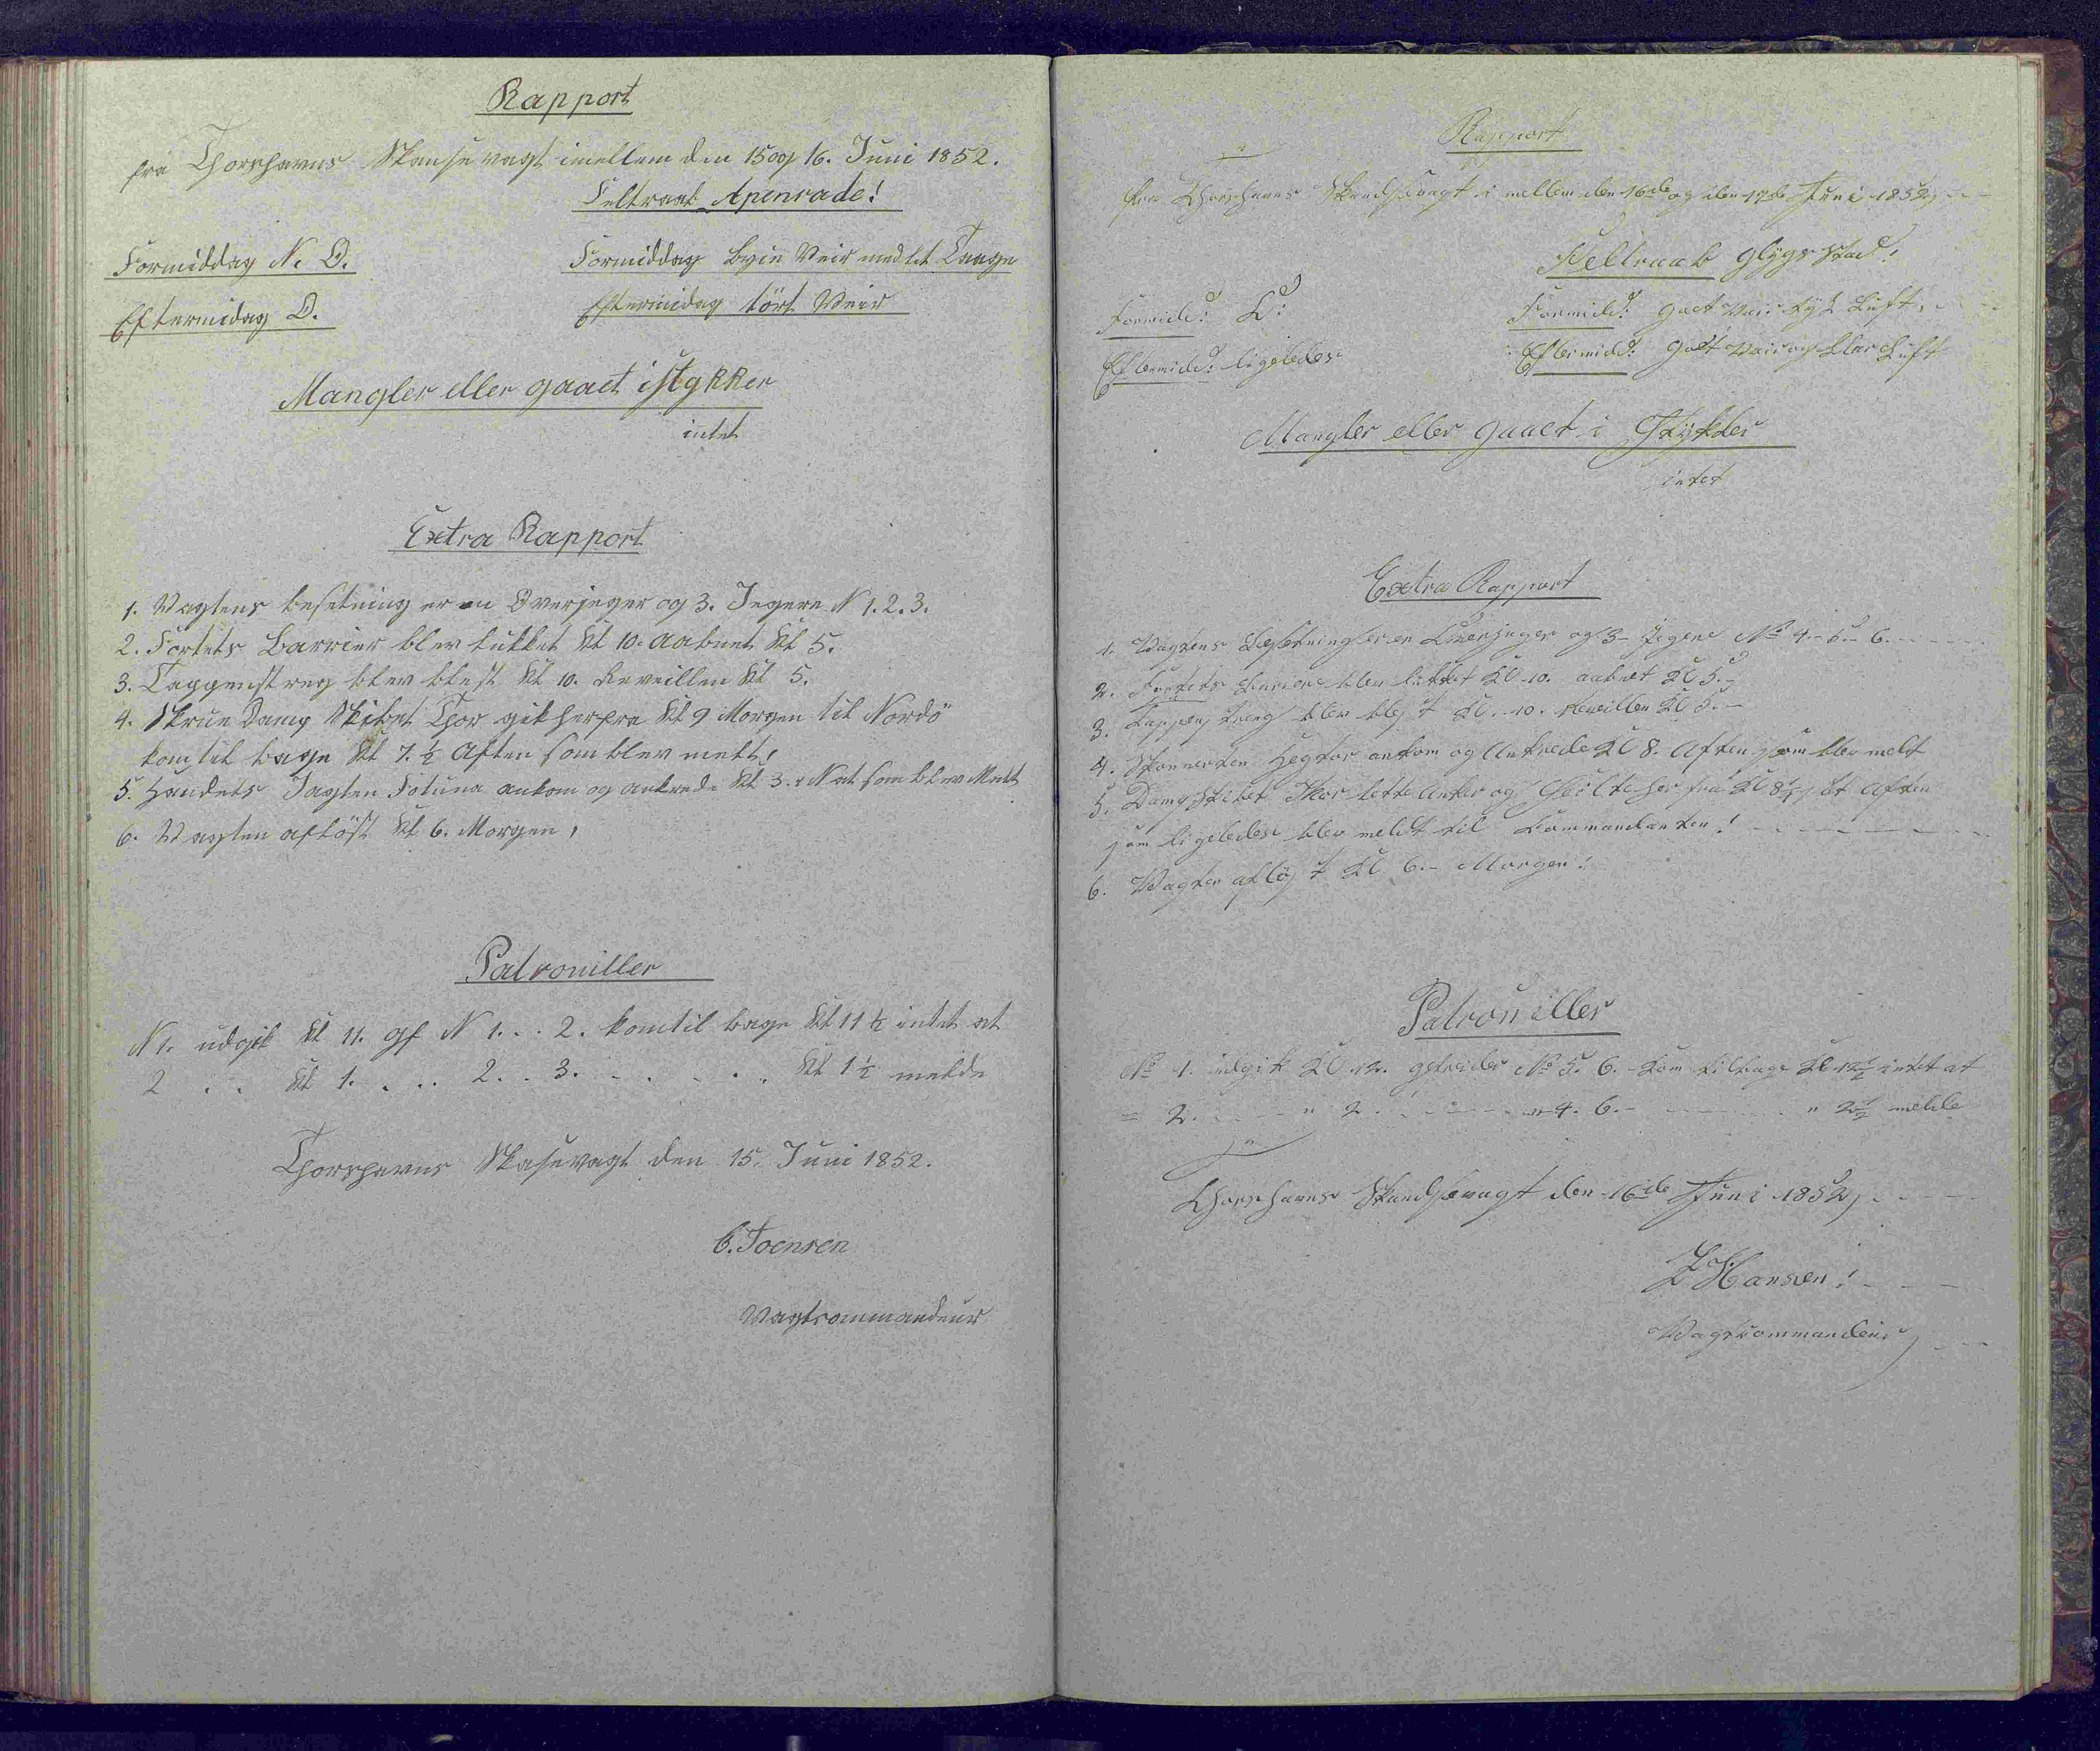 Rapport
fra Thorshavns Skansevagt imellem den 15 og 16. Juni 1852.
Feltraab Apenrade!
Formiddag N. O.
Formiddag Byin Veir med let Taage
Eftermidag O.
Eftermidag tört Veir
Mangler eller gaaet istykker
intet
Extra Rapport
1. Vagtens besetning er en Overjeger og 3. Jegere N 1. 2. 3.
2. Fortets Barrier blev lukket Kl 10. aabnet Kl 5.
3. Tappenstreg blev blest Kl 10. Reveillen Kl 5.
4. Skrue Damp Skibet Thor gik herfra Kl 9 Morgen til Nordö
kom til bage Kl 7. ½ Aften som blev melt!
5. Handels Jagten Fotuna ankom og ankrede Kl 3. Nat som blev Melt
6. Vagten aflöst Kl 6. Morgen,
Patrouiller
N 1. udgik Kl 11. gf N 1. . . 2. kom til bage Kl 11 ½ intet at
2 . . Kl 1. . . . 2. . 3. . . . . . Kl 1 ½ melde
Thorshavns Skasevagt den 15. Juni 1852.
C. Joensen
Vagtcommandeur
Rapport
fra Thorshavns Skandsevagt i mellem den 16de og den 17de Juni 1852,
Feltraab Glygstad!
Formidd: O:
Formidd: gaet Veir tyk Luft,
Eftermidd: ligeledes
Eftermidd: gaet Veir og klar Luft
Mangler eller gaaet i Stykker
intet
Extra Rapport
1. Vagtens Besetning er en Overjeger og 3 Jegere No 4. - 5. - 6.
2. Fortets Bariere blev lukket Kl 10. aabnet Kl 5. -
3. Tappenstreg blev blest Kl. 10. Reveillen Kl 5. -
4. Skonnerten Hegtor ankom og Ankrede Kl 8. Aften som blev meldt
5. Damp Skibet Thor lette Anker og her fra Kl Aften
som ligeledes blev meldt til Kommandanten!
6. Vagten aflöst Kl 6. - Morgen!
Patrouiller
No 1. udgik Kl 12. gefreider No 5. 6. - kom tilbage Kl 12½ intet at
= 2. - - " 2. - - - " 4. 6. - - - " 2½ melde
Thorshavns Skandsevagt den 16de Juni 1852,
Hansen!
Vagtkommandeur,